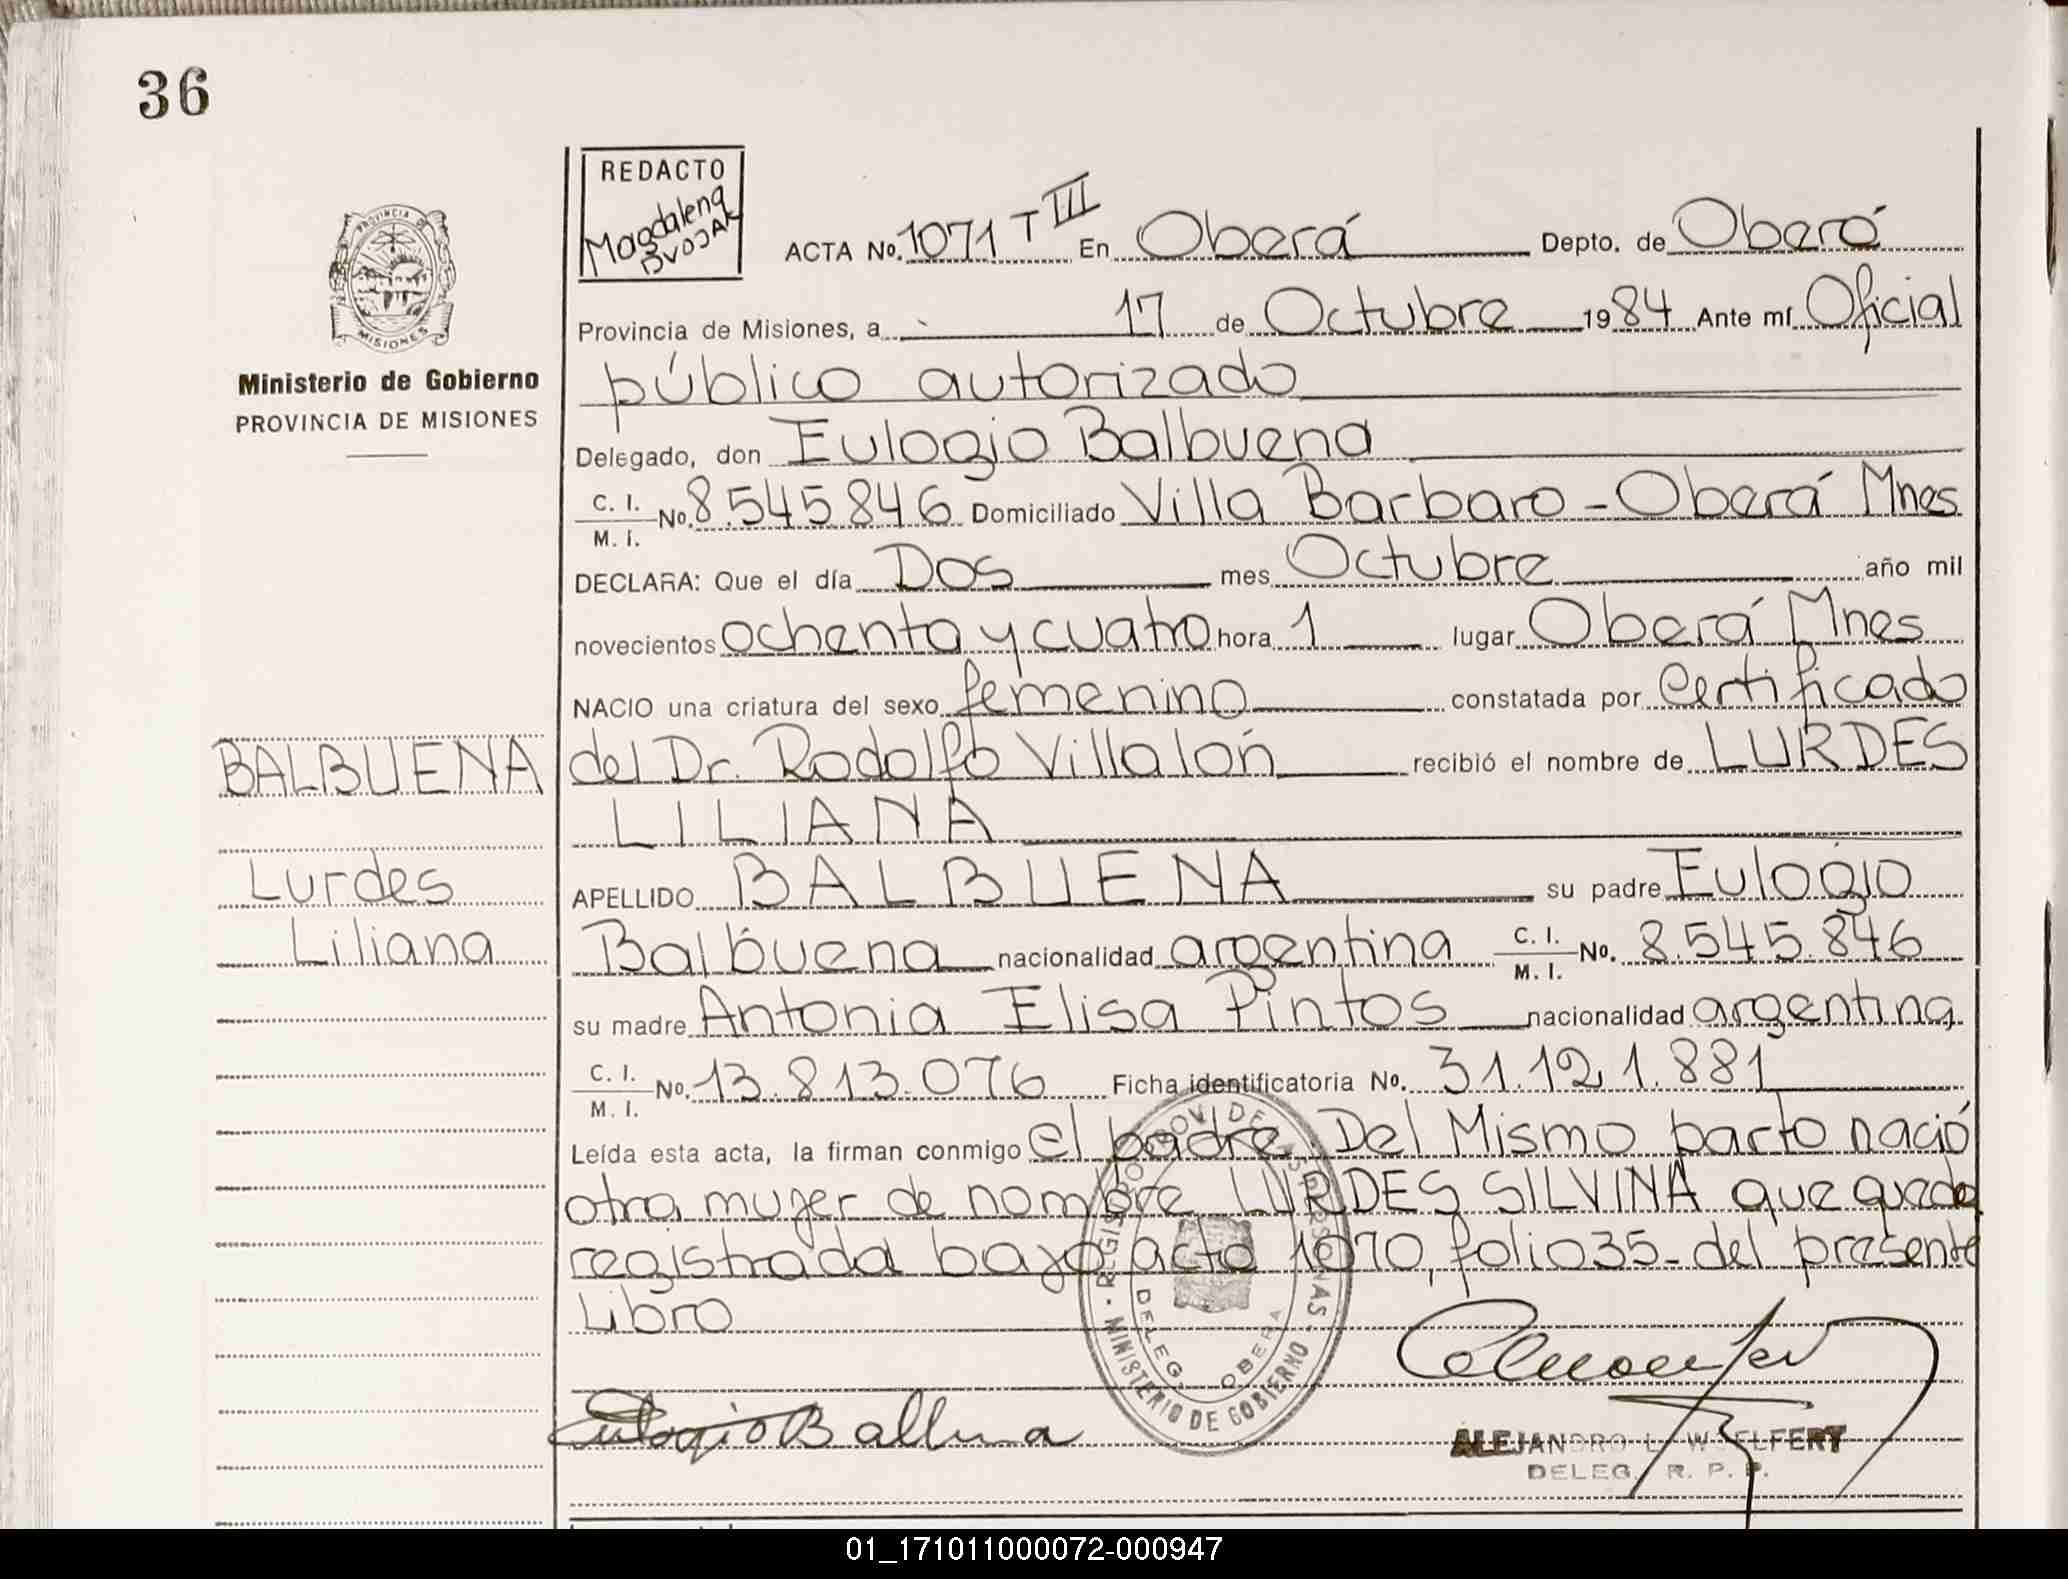 36
REDACTO
Magdalena
DVOJAK
ACTA No. 1071 T III En Oberá Depto. de Oberá
PROVINCIA DE
MISIONES
Provincia de Misiones, a 17 de Octubre 1984 Ante mí Oficial
Ministerio de Gobierno
PROVINCIA DE MISIONES
público autorizado
Delegado, don Eulogio Balbuena
C. I.
M. I. No. 8.545.846 Domiciliado Villa Barbaro - Oberá Mnes
DECLARA: Que el día Dos mes Octubre año mil
novecientos ochenta y cuatro hora 1 lugar Oberá Mnes
NACIO una criatura del sexo femenino constatada por Certificado
BALBUENA
del Dr. Rodolfo Villalón recibió el nombre de LURDES
LILIANA
Lurdes
APELLIDO BALBUENA su padre Eulogio
Liliana
Balbuena nacionalidad argentina C. I. M. I. No. 8.545.846
su madre Antonia Elisa Pintos nacionalidad argentina
C. I.
M. I. No. 13.813.076 Ficha identificatoria No. 31.121.881
Leída esta acta, la firman conmigo el padre. Del Mismo parto nació
otra mujer de nombre LURDES SILVINA que queda
registrada bajo acta 1070, folio 35- del presente
Libro
REGISTRO PROV. DE LAS PERSONAS
MINISTERIO DE GOBIERNO
DELEG. OBERA
Eulogio Balbuna
ALEJANDRO L. WOELFERT
DELEG. R. P. P.
01_171011000072-000947